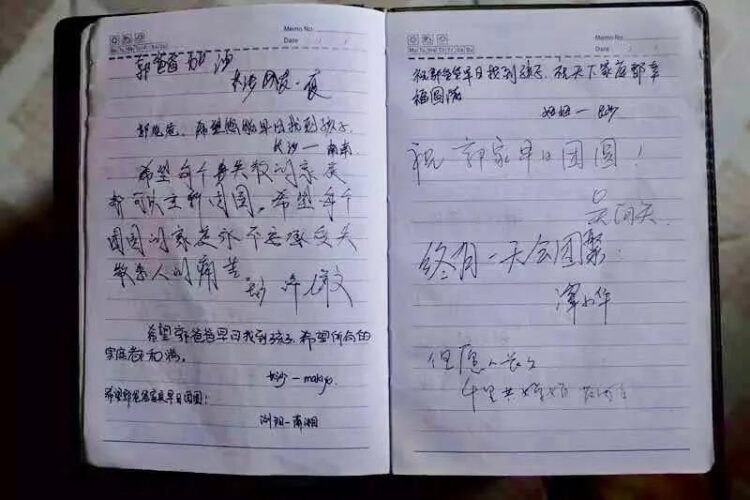 Memo No.
Date
Mo Tu We Th Fr Sa Su
郭爸爸加油
长沙网友·夜
希望您能早日找到孩子
长沙—南来
希望每个丢失孩的家庭
都可以重新团圆。希望每个
团圆的家庭永不要承受失
散亲人的痛苦。
希望郭爸爸早日找到孩子,希望所有的
家庭都和满。
长沙—makiyo
希望郭爸爸家庭早日团圆!
浏阳—萧湘
Memo No.
Date
Mo Tu We Th Fr Sa Su
祝郭爸爸早日找到孩子,祝天下家庭都幸
福团圆
祝郭家早日团圆!
终有一天会团聚.
但愿人长久
千里共婵娟